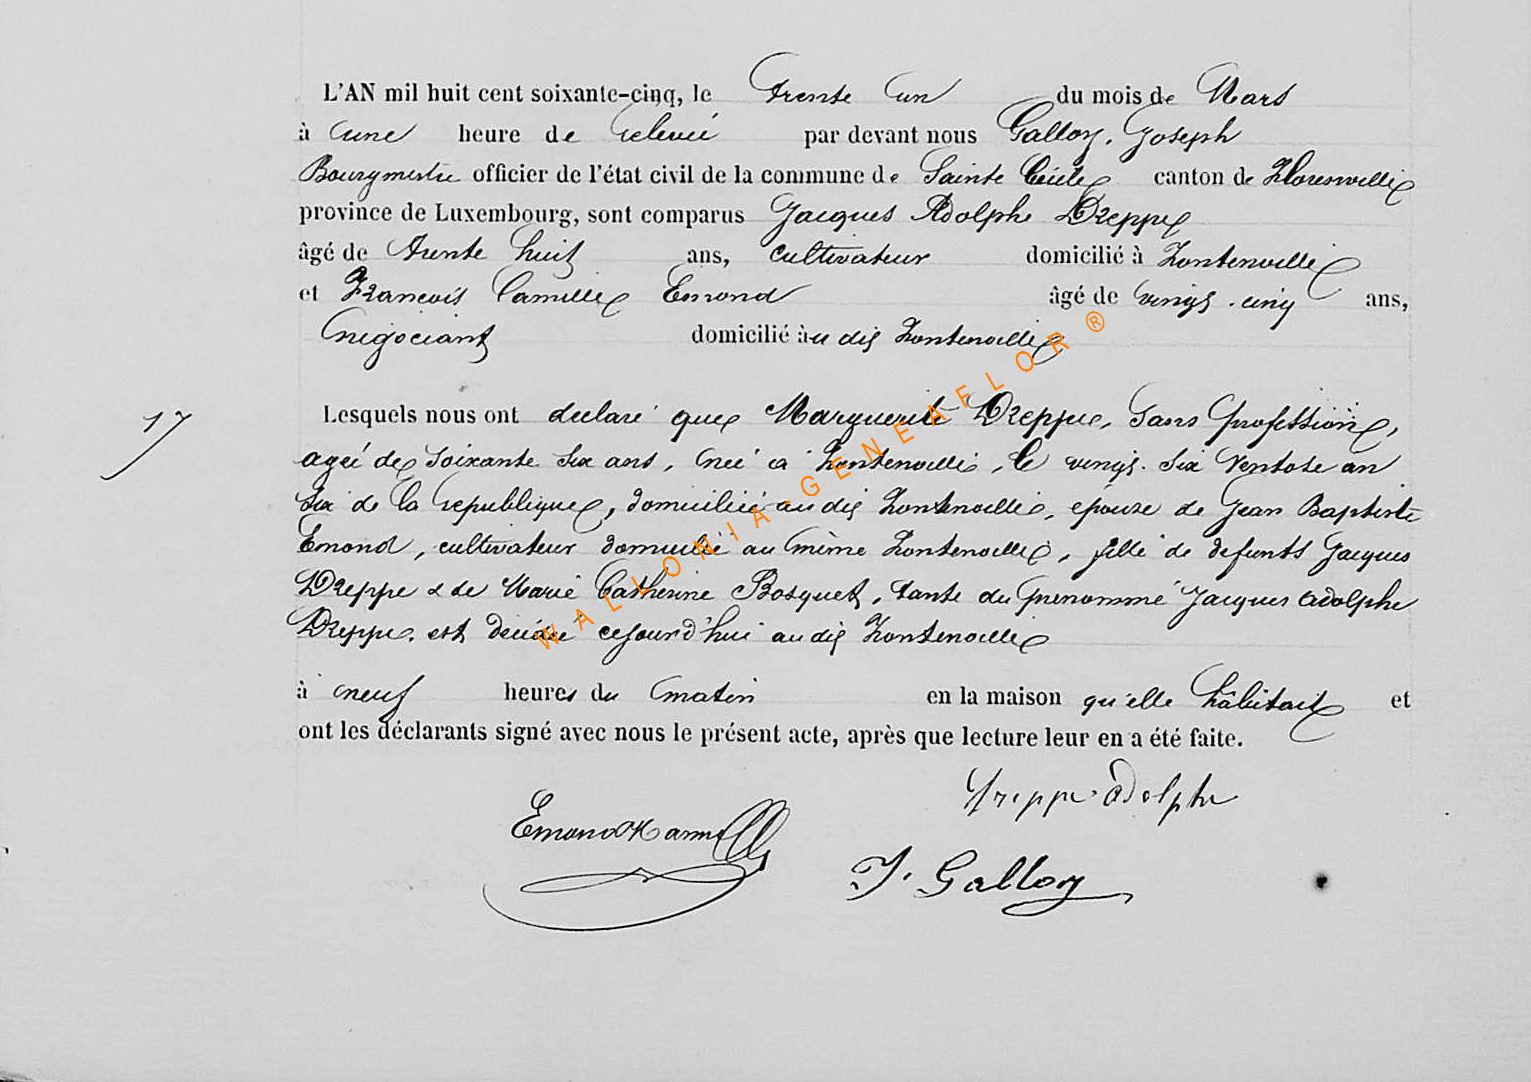 L'AN mil huit cent soixante-cinq, le trente un du mois de Mars
à une heure de relevée par devant nous Galloy, Joseph
Bourgmestre officier de l'état civil de la commune de Sainte Cécile canton de Florenville
province de Luxembourg, sont comparus Jacques Adolphe Dreppe
âgé de trente huit ans, cultivateur domicilié à Fontenoille
et François Camille Emond âgé de vingt-cinq ans,
négociant domicilié à u dit Fontenoille
17
Lesquels nous ont déclaré que Marguerite Dreppe, sans profession,
agée de soixante six ans, née à Fontenoille, le vingt-six ventose an
six de la république, domiciliée au dit Fontenoille, épouse de Jean Baptiste
Emond, cultivateur domicilié au même Fontenoille, fille de defunts Jacques
Dreppe & de Marie Catherine Bosquet, tante du prénommé Jacques Adolphe
Dreppe, est décédée cejourd'hui au dit Fontenoille
à neuf heures du matin en la maison qu'elle habitait et
ont les déclarants signé avec nous le présent acte, après que lecture leur en a été faite.
Dreppe Adolphe
Emond Kamill
J. Galloy
WALLONIA-GENEAFLOR ®